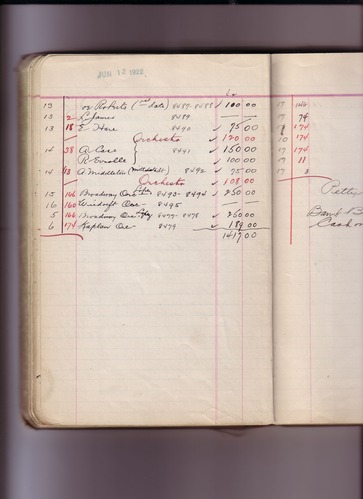 JUN 12 1922
13 Roberts (2nd date) 8487-8488 ✓ 100 00
13 2 C James 8489
13 18 E. Hare 8490 ✓ 75 00
Orchestra ✓ 120 00
14 38 A. Core } 8491 ✓ 150 00
R. } ✓ 100 00
14 A Middleton 8492 ✓ 75 00
Orchestra ✓ 108 00
15 166 Broadway 8493-8494 ✓ 250 00
16 160 8495
5 166 Broadway 8477-8478 ✓ 250 00
6 174 Kaplan 8479 ✓ 189 00
1417 00
17 146
17 74
17 174
10 174
17 174
17 11
17 3
Petty
Bank B
Cash o